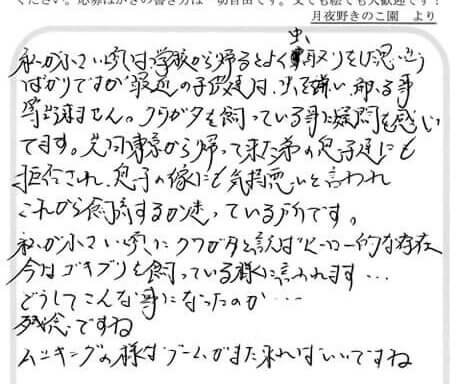 ください。応募はがきの書き方は一切自由です。文でも絵でも大歓迎です！
月夜野きのこ園　より
虫
私が小さい頃は学校から帰るとよく取りをした思い出
ばかりですが最近の子供達は、虫を嫌い、触る事
出来ません。クワガタを飼っている事に疑問を感じ
てます。先日東京から帰って来た弟の息子達にも
拒否され、息子の嫁にも気持悪いと言われ
これから飼育するか迷っている所です。
私が小さい頃にクワガタと言えばヒーロー的な存在
今はゴキブリを飼っている様に言われます…
どうしてこんな事になったのか…
残念ですね
ムシキングの様なブームがまた来ればいいですね